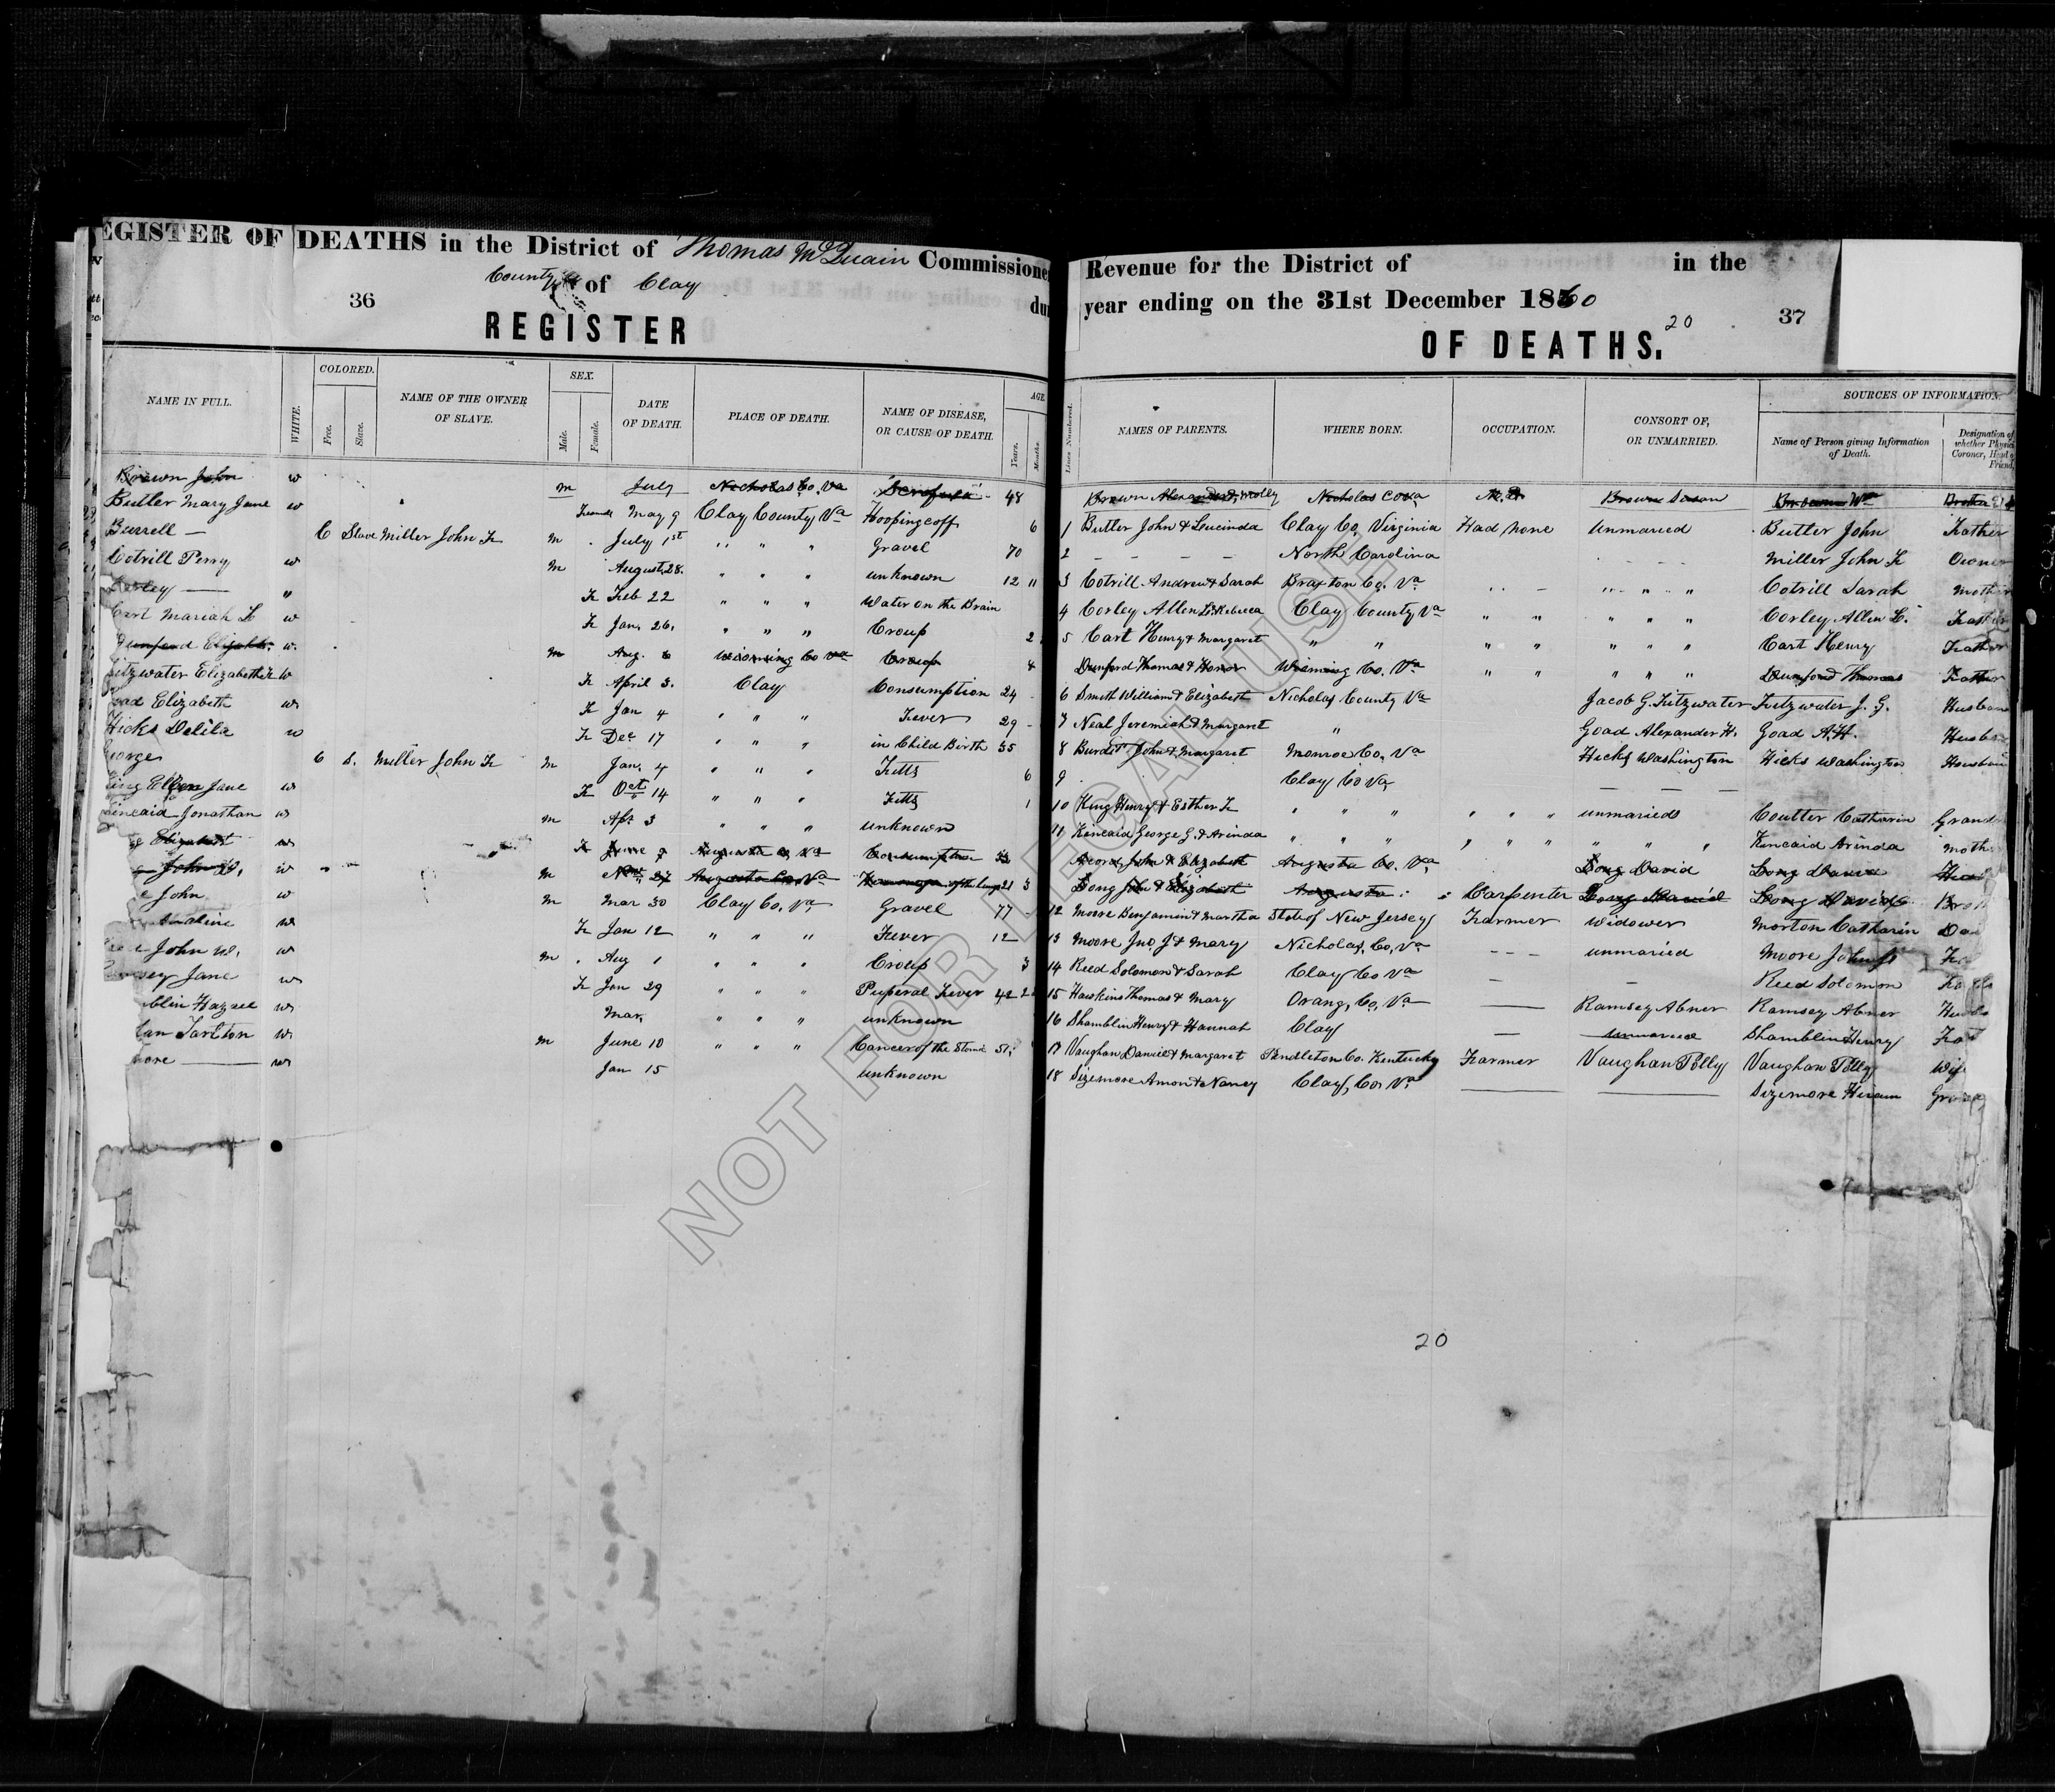 REGISTER OF DEATHS in the District of Thomas McQuain Commissioner
County of Clay
36
REGISTER
NAME IN FULL. WHITE. COLORED. Free. Slave. NAME OF THE OWNER OF SLAVE. SEX. Male. Female. DATE OF DEATH. PLACE OF DEATH. NAME OF DISEASE, OR CAUSE OF DEATH. AGE Years. Months.
Brown John w m July Nicholas Co. Va Scrofula 48
Butler Mary Jane w Female May 9 Clay County Va Hooping coff 6
Burrell — C Slave Miller John F m July 1st " " " Gravel 70
Cotrill Perry w m August 28. " " " unknown 12 11
Corley — " F Feb 22 " " " Water on the Brain
Cart Mariah L w F Jan. 26. " " " Croup 2
Dunford Elizabth. w. m Aug. 6 Wioming Co Va Croup 4
Fitzwater Elizabeth F w F April 3. Clay Consumption 24
oad Elizabeth w F Jan 4 " " " Fever 29
Hicks Delila w F Dec 17 " " " in Child Birth 35
George C S. Miller John F m Jan. 4 " " " Fitts 6
King Ellen Jane w F Oct 14 " " " Fitts 1
Kincaid Jonathan w m Apr 3 " " " unknown
g Elizabeth w F June 7 Augusta Co Va Consumption
g John w m Nov 27 Augusta Co. Va of the Lungs 21 3
e John w m Mar 30 Clay Co. Va Gravel 77
w F Jan 12 " " " Fever 12
John W. w m Aug 1 " " " Croup 3
sey Jane w F Jan 29 " " " Puperal Fever 42 2
blin Hazael w Mar. " " " unknown
han Tarlton w m June 10 " " " Cancer of the Stomc 51
more — w Jan 15 unknown
Revenue for the District of in the
year ending on the 31st December 1860
20
37
OF DEATHS.
Lines Numbered. NAMES OF PARENTS. WHERE BORN. OCCUPATION. CONSORT OF, OR UNMARRIED. SOURCES OF INFORMATION. Name of Person giving Information of Death. Designation of whether Physic Coroner, Head of Friend,
Brown Alexander & Molly Nicholas Co Va Brown Susan Brown Wm Brother
1 Butler John & Leucinda Clay Co, Virginia Had none Unmaried Butler John Father
2 — — — — North Carolina Miller John F Owner
3 Cotrill Andrew & Sarah Braxton Co. Va " " " Cotrill Sarah Mother
4 Corley Allen L & Rebecca Clay County Va " " " " " Corley Allen L. Father
5 Cart Henry & Margaret " " " " " " " Cart Henry Father
Dunford Thomas & Honor Wioming Co. Va " " " " " Dunford Thomas Father
6 Smith William & Elizabeth Nicholas County Va Jacob G. Fitzwater Fitzwater J. G. Husban
7 Neal Jeremiah & Margaret " Goad Alexander H. Goad A. H. Husb
8 Burdit John & Margaret Monroe Co. Va Hicks Washington Hicks Washington Husban
9 Clay Co Va — — —
10 King Henry & Esther F " " " " " " unmaried Coutter Catharin Grand
11 Kincaid George G. & Arinda " " " " " " " " " Kincaid Arinda moth
John & Elizabeth Augusta Co. Va Long David Long David
Long John & Elizabeth Augusta " Carpenter Long David Long David Broth
12 Moore Benjamin & Martha State of New Jersey Farmer widower Morton Catharin Dau
13 Moore Jno J & Mary Nicholas, Co, Va — — — unmaried Moore John J
14 Reed Solomon & Sarah Clay Co Va — — Reed Solomon
15 Hawkins Thomas & Mary Orang, Co, Va — Ramsey Abner Ramsey Abner
16 Shamblin Henry & Hannah Clay — unmaried Shamblin Henry
17 Vaughan Daniel & Margaret Pendleton Co. Kentucky Farmer Vaughan Polly Vaughan Polly Wife
18 Sizemore Amon & Nancy Clay, Co. Va — — Sizemore Hiram
20
NOT FOR LEGAL USE